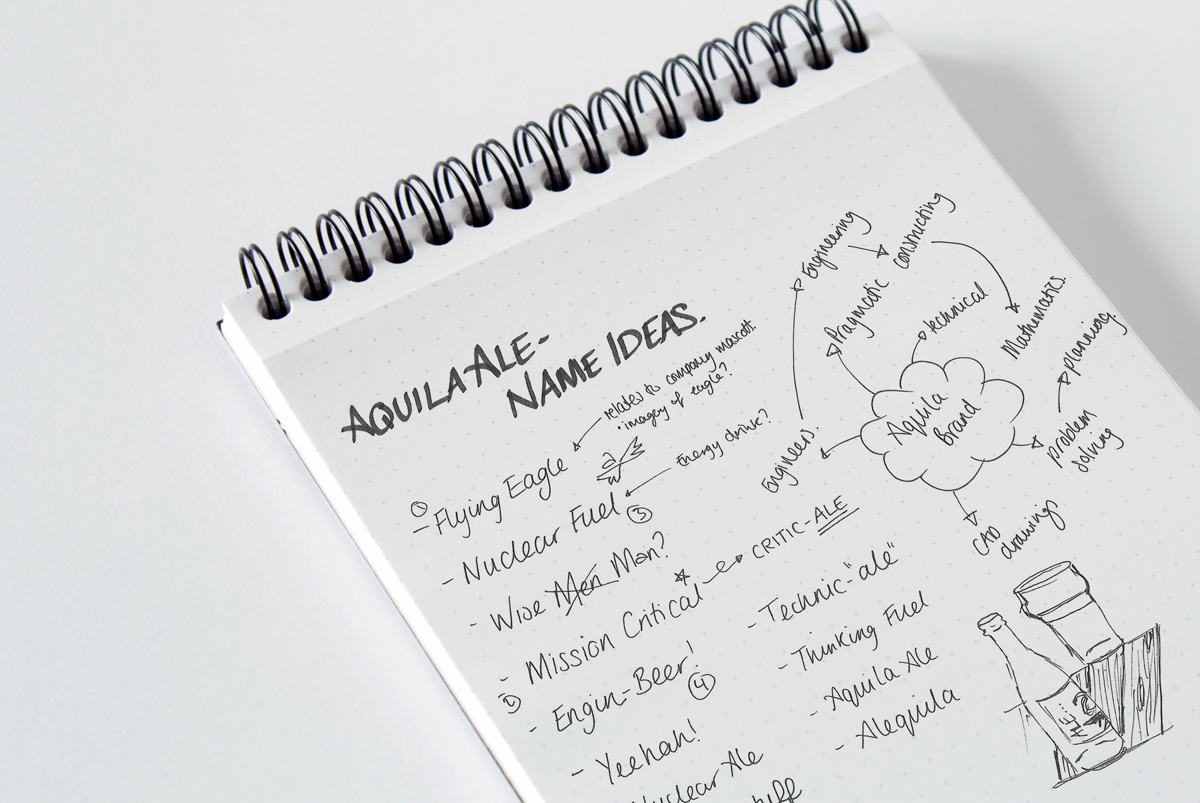 AQUILA ALE-
NAME IDEAS.
relates to company mascot.
• imagery of eagle?
- Flying Eagle
Energy drink?
- Nuclear Fuel
3
- Wise Men Man?
- Mission Critical
CRITIC-ALE
- Engin-Beer!
4
- Yeehah!
Nuclear Ale
- Technic-"ale"
- Thinking Fuel
- Aquila Ale
- Alequila
Aquila
Brand
Engineers.
Engineering
constructing
Mathematics.
Pragmatic
technical
problem
solving
planning.
CAD
drawings